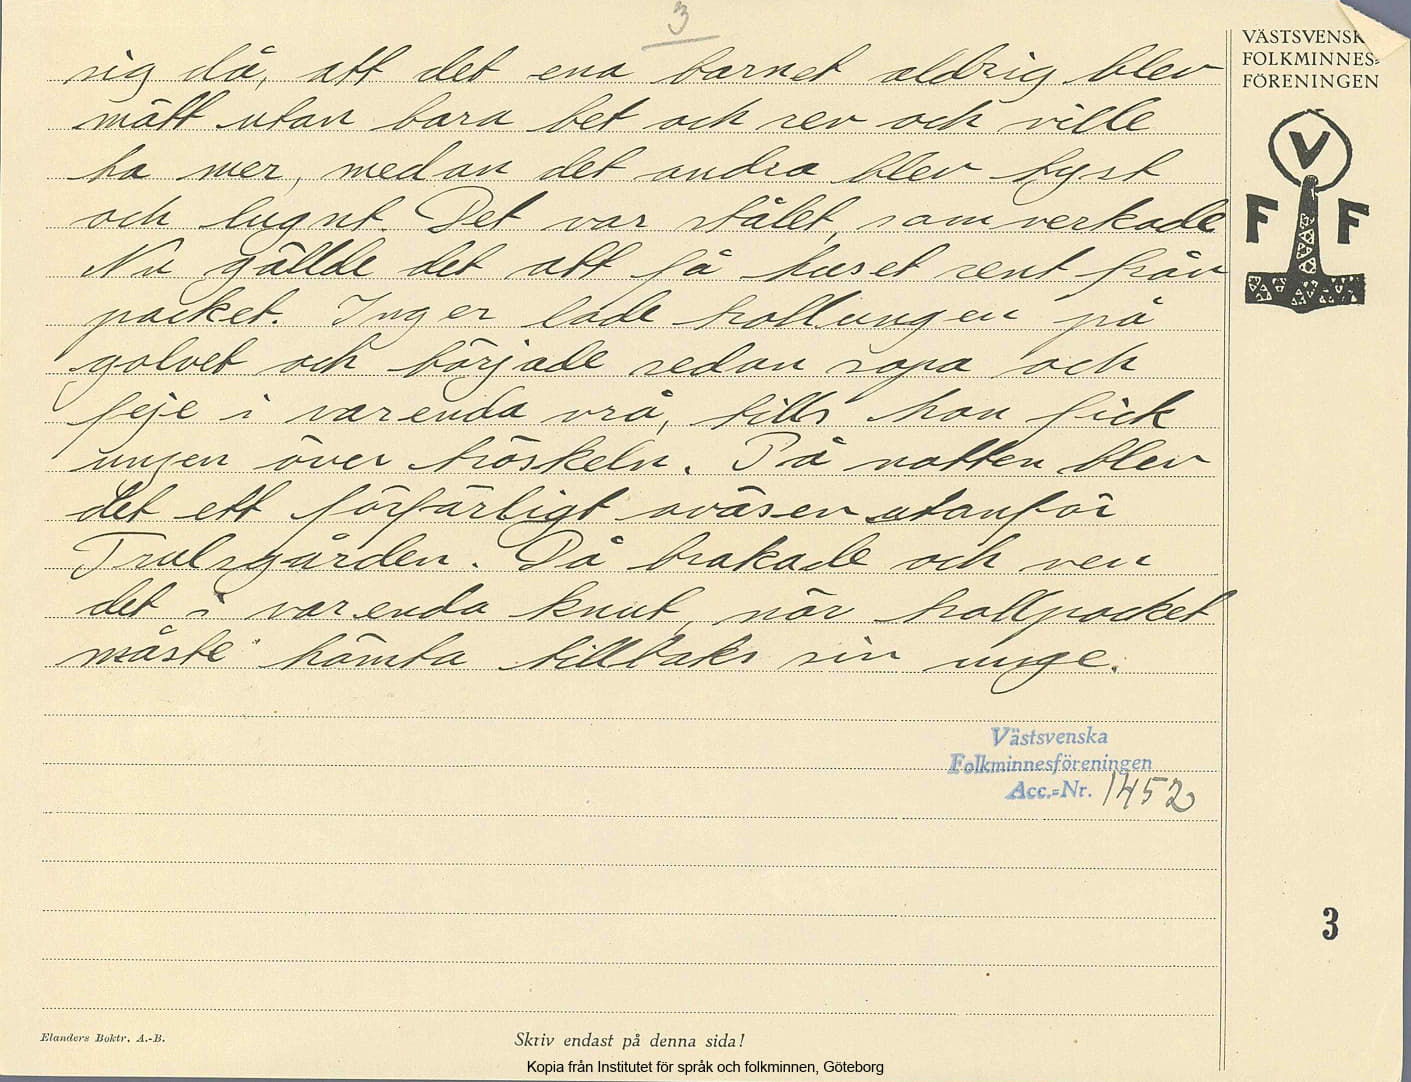 3
sig då, att det ena barnet aldrig blev
mätt utan bara bet och rev och ville
ha mer, medan det andra blev tyst
och lugnt. Det var stålet, som verkade
Nu gällde det att få huset rent från
packet. Inger lade trollungen på
golvet och började sedan sopa och
feje i varenda vrå, tills hon fick
ungen över tröskeln. På natten blev
det ett förfärligt oväsen utanför
Trulsgården. Då brakade och ven
det i varenda knut, när trollpacket
måste hämta tillbaks sin unge.
VÄSTSVENSK
FOLKMINNES-
FÖRENINGEN
V
F F
Västsvenska
Folkminnesföreningen
Acc.-Nr. 1452
3
Elanders Boktr. A.-B.
Skriv endast på denna sida!
Kopia från Institutet för språk och folkminnen, Göteborg